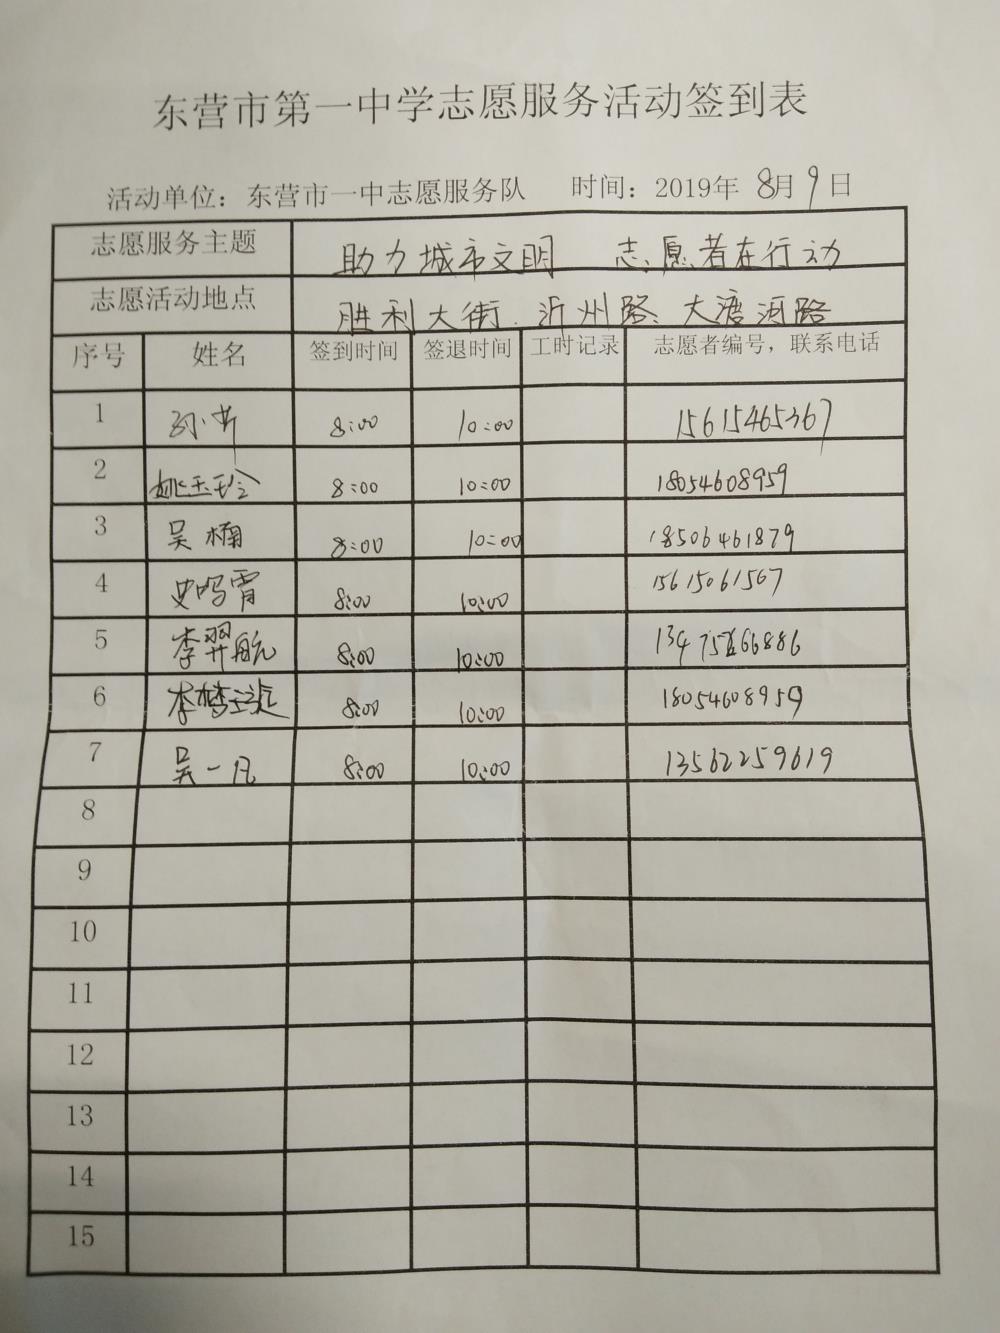 东营市第一中学志愿服务活动签到表
活动单位：东营市一中志愿服务队 时间：2019年 8月 9日
志愿服务主题 助力城市文明 志愿者在行动
志愿活动地点 胜利大街、沂州路、大渡河路
序号 姓名 签到时间 签退时间 工时记录 志愿者编号，联系电话
1 8:00 10:00 15615465367
2 姚玉玲 8:00 10:00 18054608959
3 吴楠 8:00 10:00 18506461879
4 史鸣霄 8:00 10:00 15615061567
5 李羿航 8:00 10:00
6 8:00 10:00 18054608959
7 吴一凡 8:00 10:00 13562259619
8
9
10
11
12
13
14
15